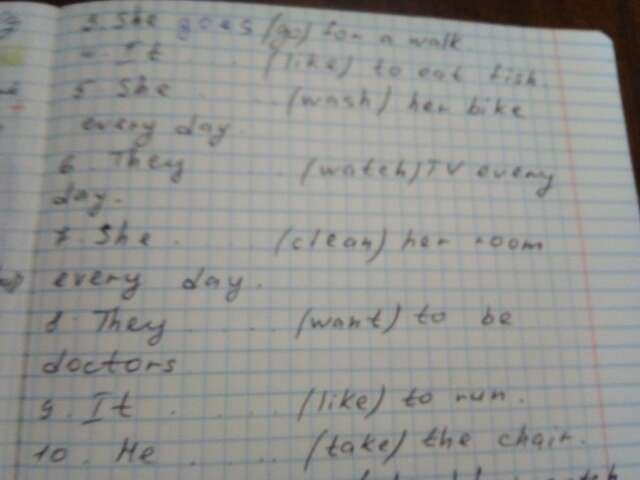 3. She goes (go) for a walk
4. It .. (like) to eat fish.
5 She .. (wash) her bike
every day
6. They . (watch) TV every
day.
7. She . (clean) her room
every day.
8. They . . (want) to be
doctors
9. It . . . . (like) to run.
10. He . . . . (take) the chair.